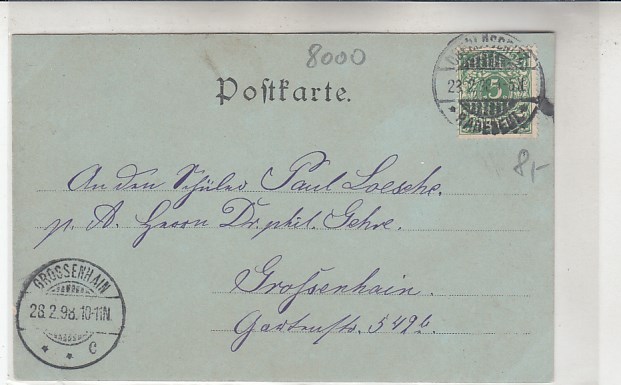 8000
Postkarte.
OBERLÖSSNITZ
5
23.2.
* RADEBEUL *
8,-
An den Schüler Paul Loesche.
p. A. Herrn Dr. phil. Gehre.
Grossenhain.
Gartenstr. 549b.
GROSSENHAIN
26.2.98.10-11N.
* * c